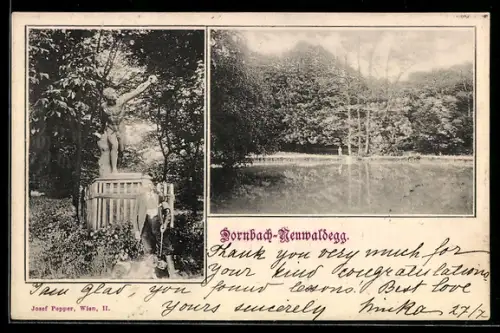 Dornbach-Neuwaldegg.
Thank you very much for
your kind congratulations
I am glad, you found lessons. Best love
Yours sincerely Minka 27/7
Josef Popper, Wien, II.